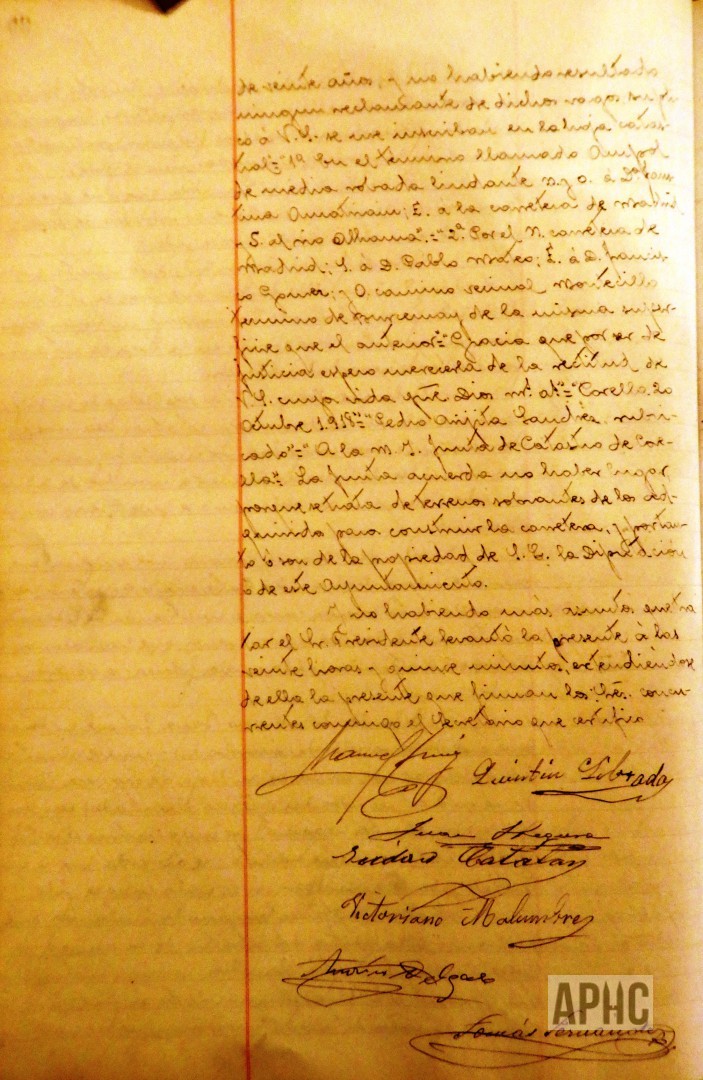 de veinte años, y no habiendo resultado
ningun reclamante de dichos
co á V.S. se me inscriban en la hoja catas-
tral"="1º En el termino llamado
de media robada lindante N. y O. á Dª Faus-
tina Amatriain; E. a la carretera de Madrid
y S. el rio Alhama".="2ª Por el N. carretera de
Madrid; S. á D. Pablo E. á D. Francis-
co Gomez; y O. camino vecinal
termino de y de la misma super-
ficie que el anterior"="Gracia que por ser de
justicia espero merecerá de la rectitud de
V.S. cuya vida gue Dios ms. as."="Corella 20
Octubre 1.918"="Pedro Sanchez rubri-
cado"="A la M. I. Junta de Catastro de Core-
lla". La Junta acuerda no haber lugar,
porque se trata de terrenos sobrantes de los ad-
quiridos para construir la carretera, y por tan-
to ó son de la propiedad de S. E. la Diputación
ó de este Ayuntamiento.
Y no habiendo más asuntos que tra
tar el Sr. Presidente levantó la presente á las
veinte horas y quince minutos, extendiéndose
de ella la presente que firman los Sres. concu-
rrentes conmigo el Secretario que certifico
Quintin
Juan
Catalan
Victoriano Malumbres
Delgado
APHC
Tomás Fernandez